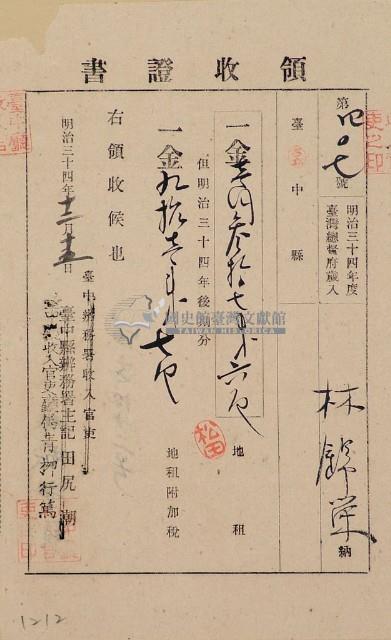 領收證書
第四〇七號
明治三十四年度
臺灣總督府歲入
臺中縣
林錦榮 納
一金壹円參拾七錢六厘 地租
但明治三十四年後期分
一金九拾壹錢七厘 地租附加稅
右領收候也
明治三十四年十二月十五日
臺中辨務署收入官吏
臺中縣辨務署主記 田尻潮
青柳行萬
松田
國史館臺灣文獻館
TAIWAN HISTORICA
1212